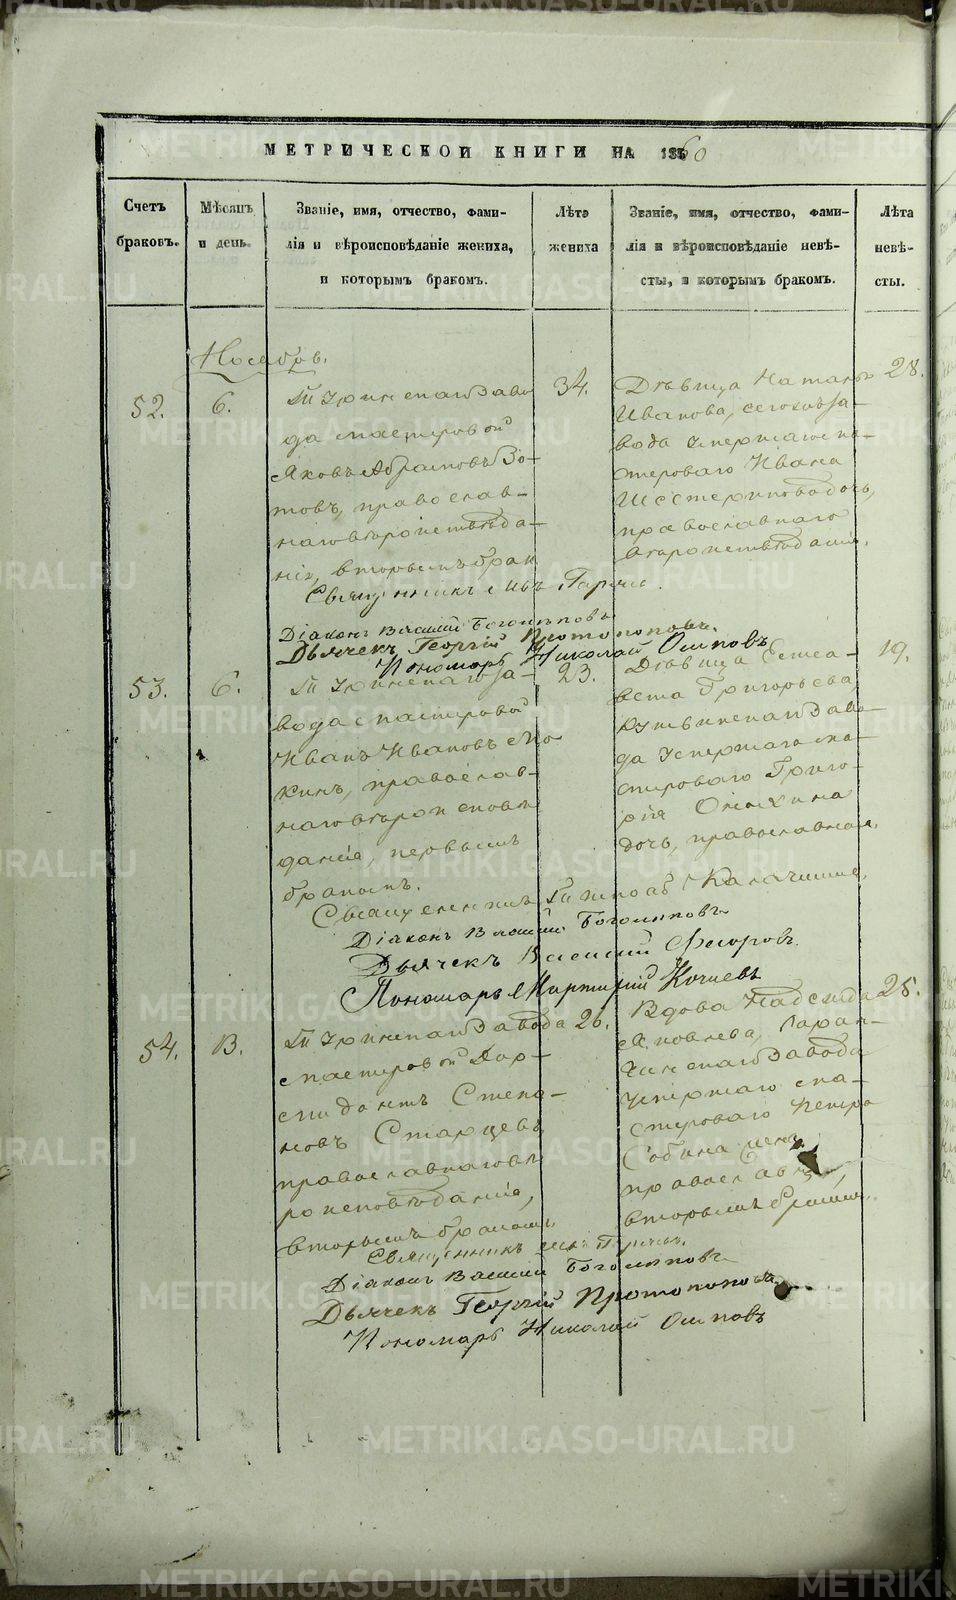 МЕТРИЧЕСКОЙ КНИГИ НА 1860
Счетъ браковъ.
Мѣсяцъ и день.
Званіе, имя, отчество, фами-
лія и вѣроисповѣданіе жениха,
и которымъ бракомъ.
Лѣта жениха
Званіе, имя, отчество, фами-
лія и вѣроисповѣданіе невѣ-
сты, и которымъ бракомъ.
Лѣта невѣ-
сты.
Ноябрь.
52.
6.
скаго заво
да мастеровой
Яковъ Абрамовъ Зо-
товъ, православ-
наго вѣроисповѣда-
нія, вторымъ брак
34.
Дѣвица Наталья
Иванова, сегожъ за-
вода умершаго ма-
стероваго Ивана
Шестерикова дочь,
православнаго
вѣроисповѣданія.
28.
Священникъ
Діаконъ Василій Богомяковъ
Дьячекъ Георгій Протопоповъ.
Пономарь Николай Осиповъ
53.
6.
скаго за-
вода мастеровой
Иванъ Ивановъ Мо
кинъ, православ-
наго вѣроисповѣ
данія, первымъ
бракомъ.
23.
Дѣвица Елиса-
вета Григорьева,
заво-
да умершаго ма-
стероваго Григо-
рія Онохина
дочь, православная,
19.
Священникъ Калачниковъ
Діаконъ Василій Богомяковъ
Дьячекъ Василій Федоровъ.
Пономарь Мартирій Кочневъ
54.
13.
скаго завода
мастеровой Дор-
мидонтъ Степа-
новъ Старцевъ,
православнаго вѣ
роисповѣданія,
вторымъ бракомъ
26.
Вдова Надежда
Яковлева,
скаго завода
умершаго ма-
стероваго Петра
Собина жена
православная,
вторымъ бракомъ.
25.
Священникъ
Діаконъ Василій Богомяковъ
Дьячекъ Георгій Протопоповъ
Пономарь Николай Осиповъ
METRIKI.GASO-URAL.RU